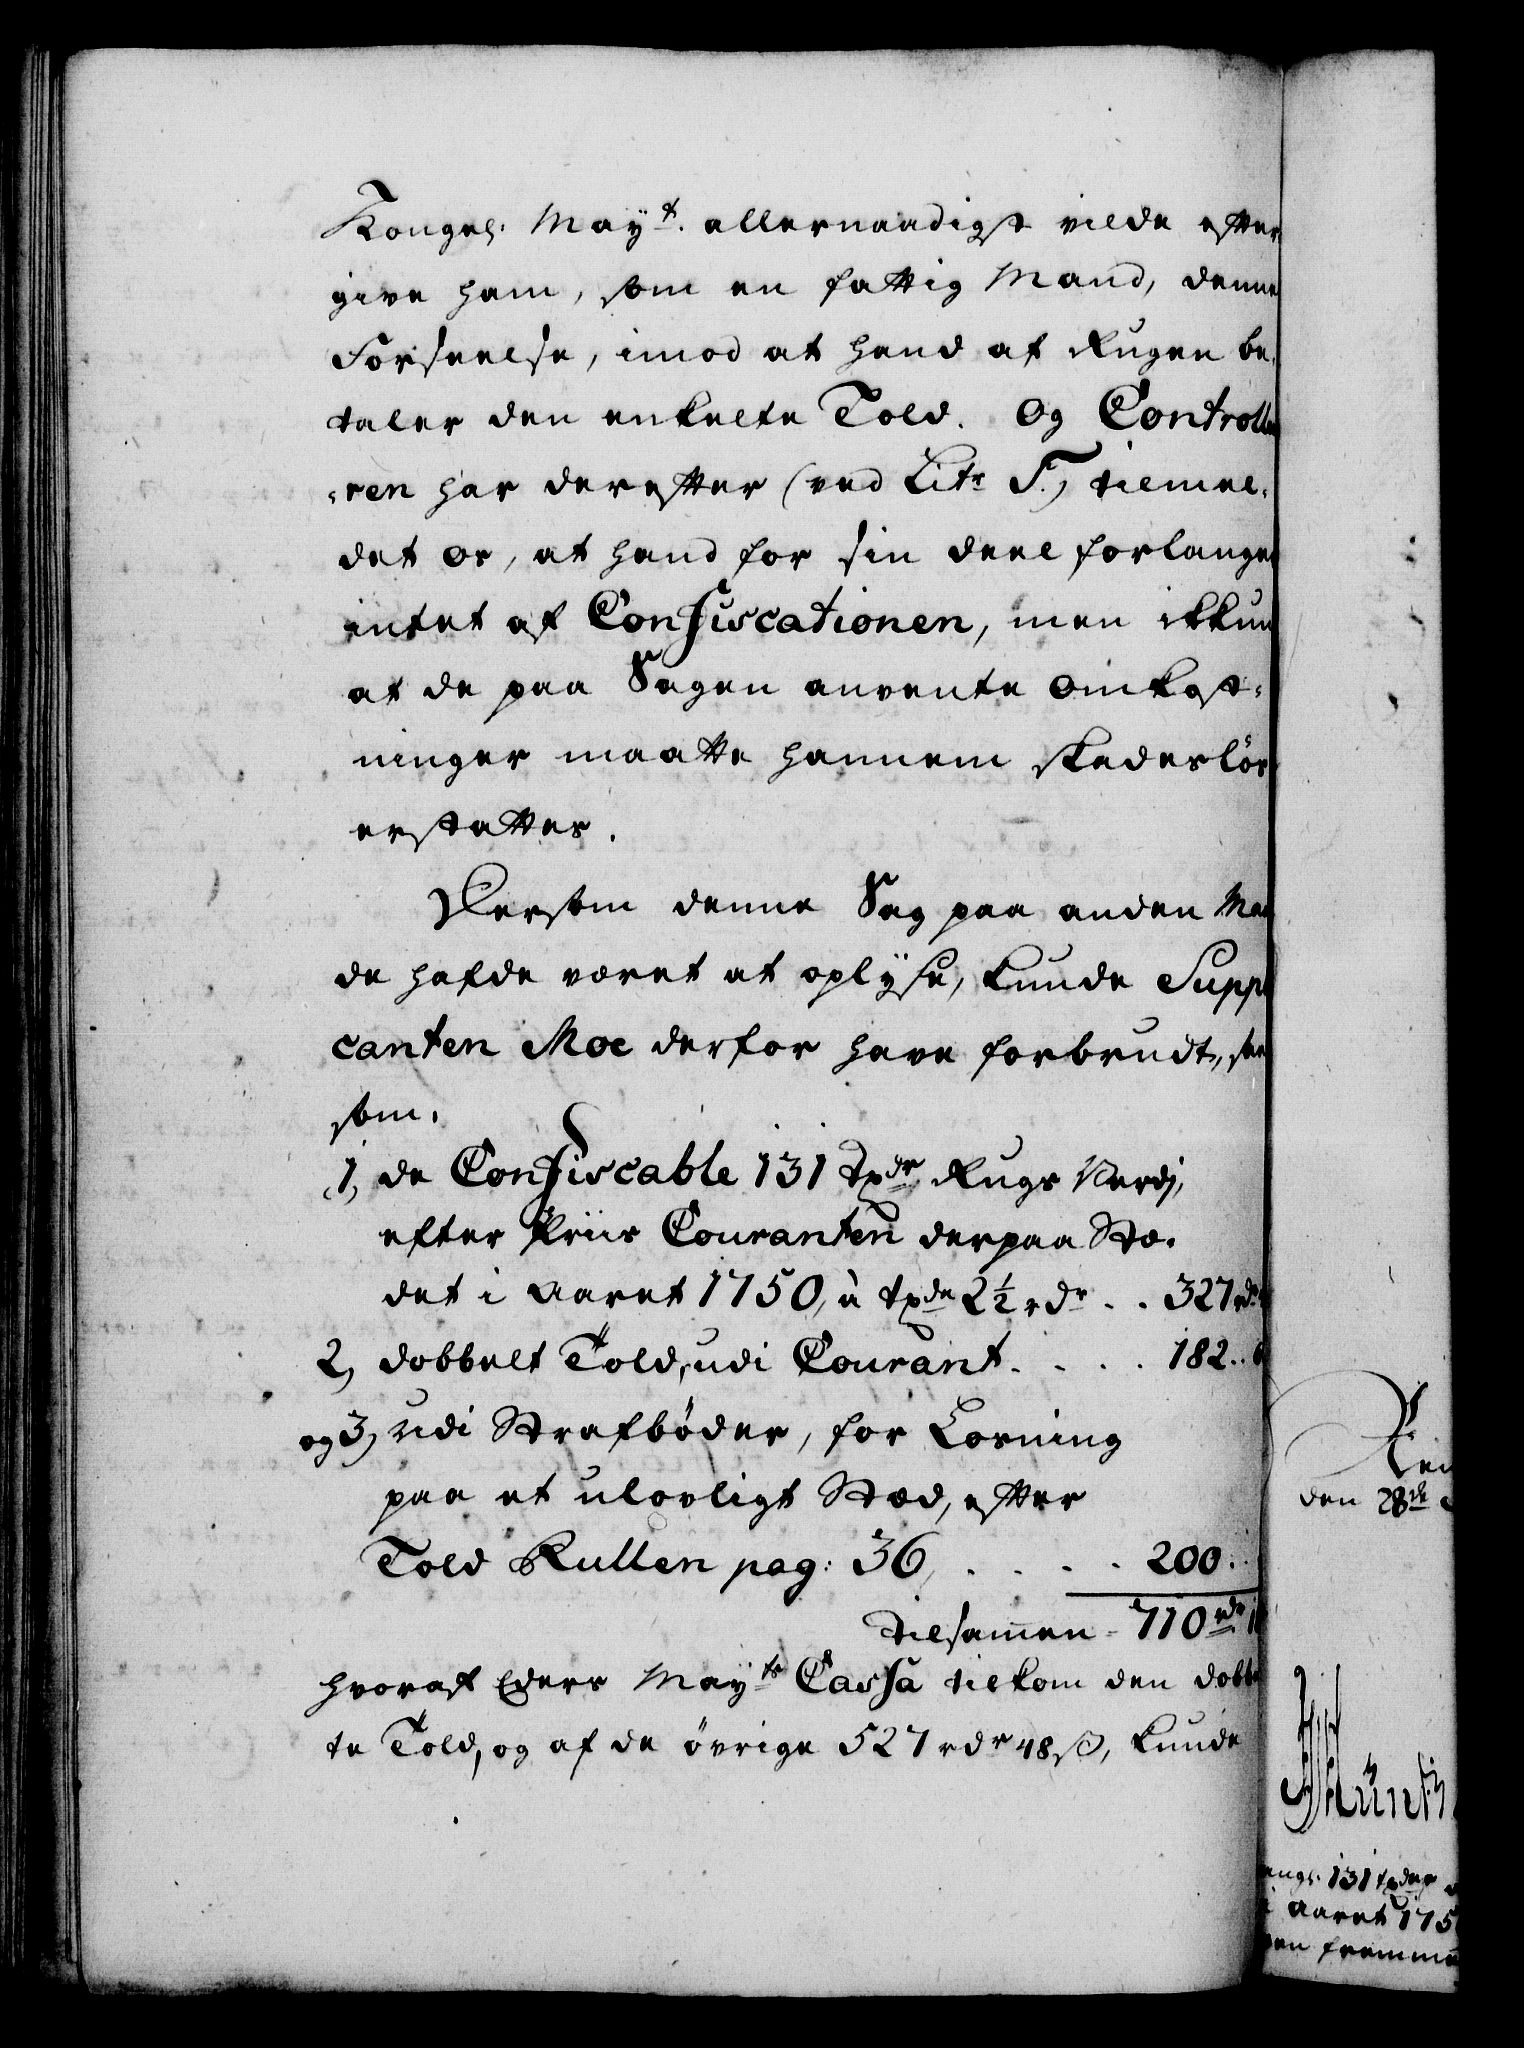 Kongel. Mayt. allernaadigst vilde efter
give ham, som en fattig Mand, denne
Forseelse, imod at hand af Rugen be-
taler den enkelte Told. Og Controlleu
=ren har derefter (ved Litr. F.) tilmel-
det os, at hand for sin deel forlanger
intet af Confiscationen, men ikkun
at de paa Sagen anvente Omkost-
ninger maatte hannem skadeslös
erstattes.
Dersom denne Sag paa anden Maa
de hafde været at oplÿse, kunde Suppli
canten Moe derfor have forbrudt, saa
som.
1, de Confiscable 131 Tpdr Rugs Verdj,
efter Priis Couranten derpaa Stæ-
det i Aaret 1750, à tpde 2½ rdr . . 327 rdr
2, dobbelt Told, udi Courant . . . . 182 .. 6
og 3, udi Strafböder, for Losning
paa et ulovligt Stæd, efter
Told Rullen pag: 36, . . . . 200 . .
tilsamen - 710 rdr
hvoraf Eders Mayts Cassa tilkom den dobbel
te Told, og af de övrige 527 rdr 48 ß, kunde
den 28de
131 tpder
i Aaret 175
fremme